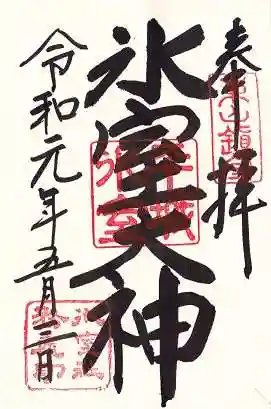 奉拝
氷室大神
令和元年五月三日